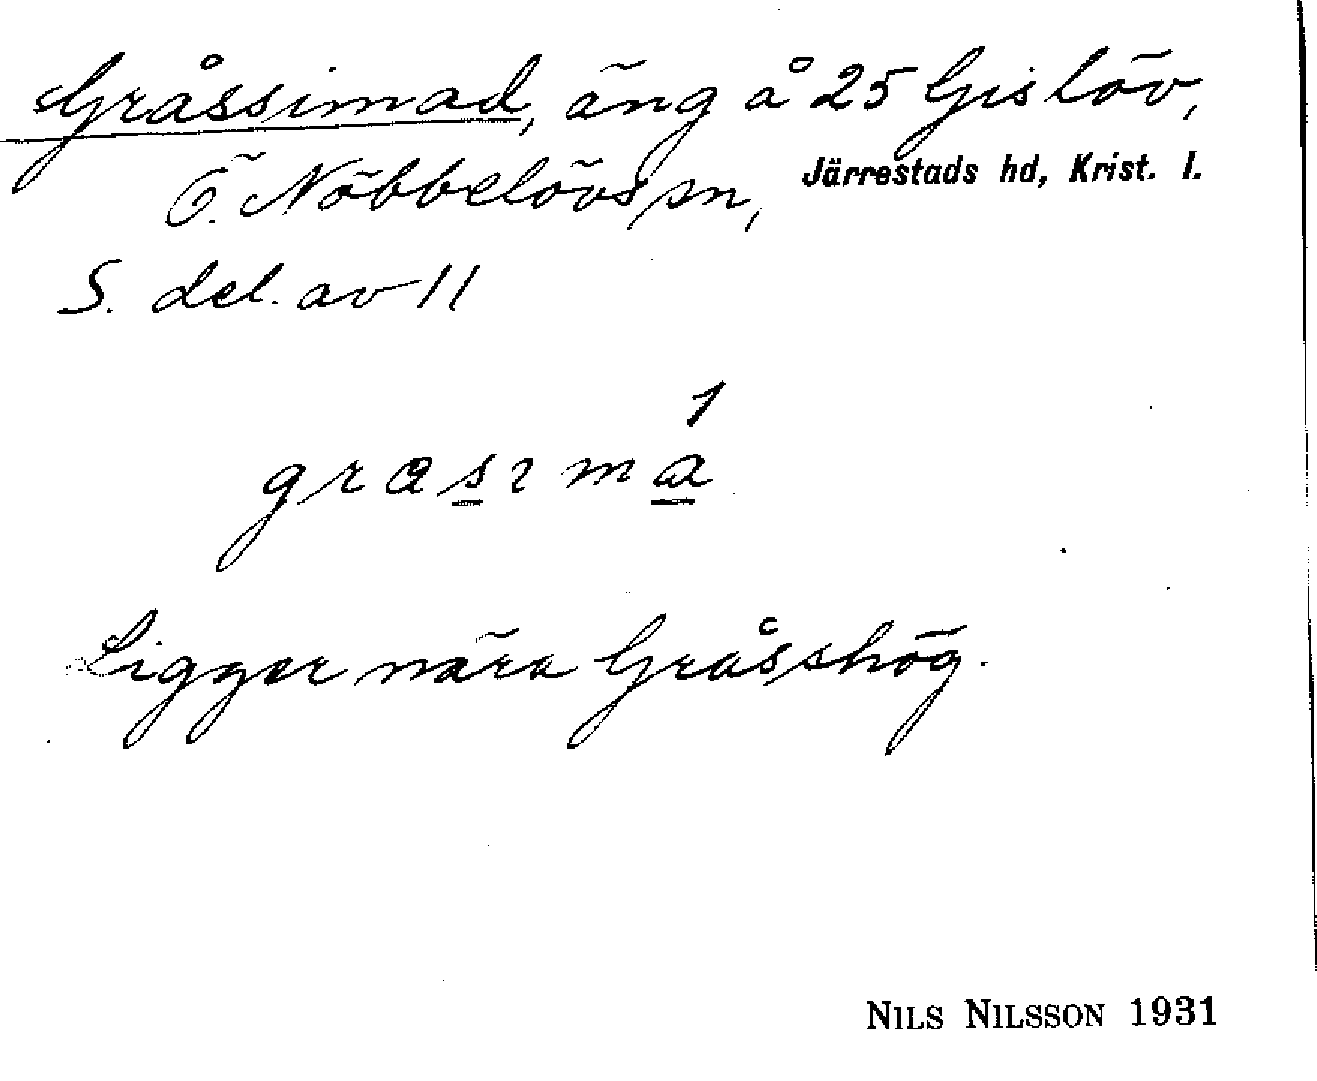 Gråssimad, äng å 25 Gislöv,
Ö. Nöbbelövs sn, Järrestads hd, Krist. l.
S. del. av 11
Ligger nära Gråsshög.
NILS NILSSON 1931